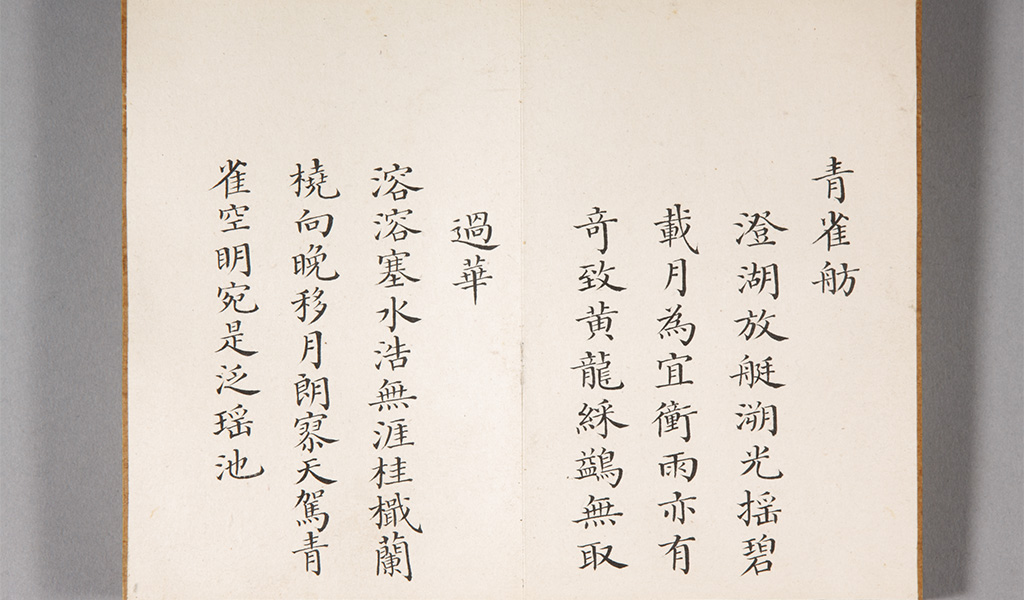 青雀舫
澄湖放艇溯光揺碧
載月為宜衝雨亦有
竒致黄龍綵鷁無取
過華
溶溶塞水浩無涯桂檝蘭
橈向晚移月朗寥天駕青
雀空明宛是泛瑶池